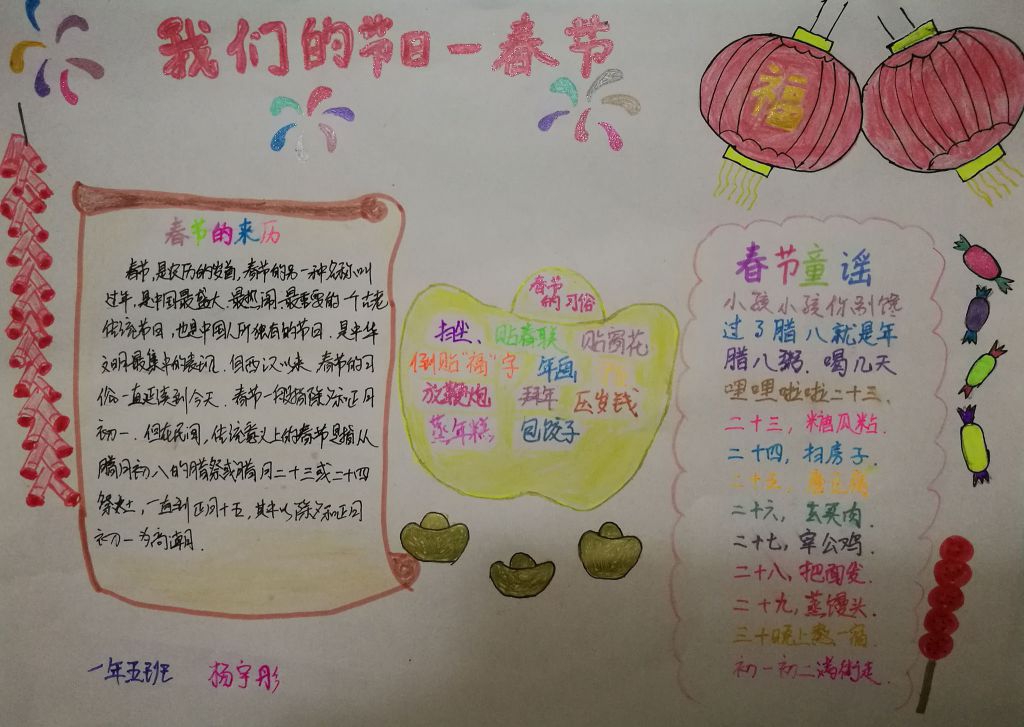 我们的节日一春节
福
春节的来历
春节,是农历的岁首,春节的另一种名称叫
过年,是中国最盛大、最热闹、最重要的一个古老
传统节日,也是中国人所独有的节日.是中华
文明最集中的表现.但西汉以来,春节的习
俗一直延续到今天.春节一般指除夕和正月
初一.但在民间,传统意义上的春节是指从
腊月初八的腊祭或腊月二十三或二十四
祭灶,一直到正月十五,其中以除夕和正月
初一为高潮.
春节
的习俗
扫尘、贴春联 贴窗花
倒贴"福"字 年画
放鞭炮 拜年 压岁钱
蒸年糕 包饺子
春节童谣
小孩小孩你别馋
过了腊八就是年
腊八粥.喝几天
哩哩啦啦二十三.
二十三,糖瓜粘.
二十四,扫房子.
二十五,磨豆腐
二十六,去买肉.
二十七,宰公鸡.
二十八,把面发.
二十九,蒸馒头.
三十晚上熬一宿
初一初二满街走.
一年五班 杨宇彤